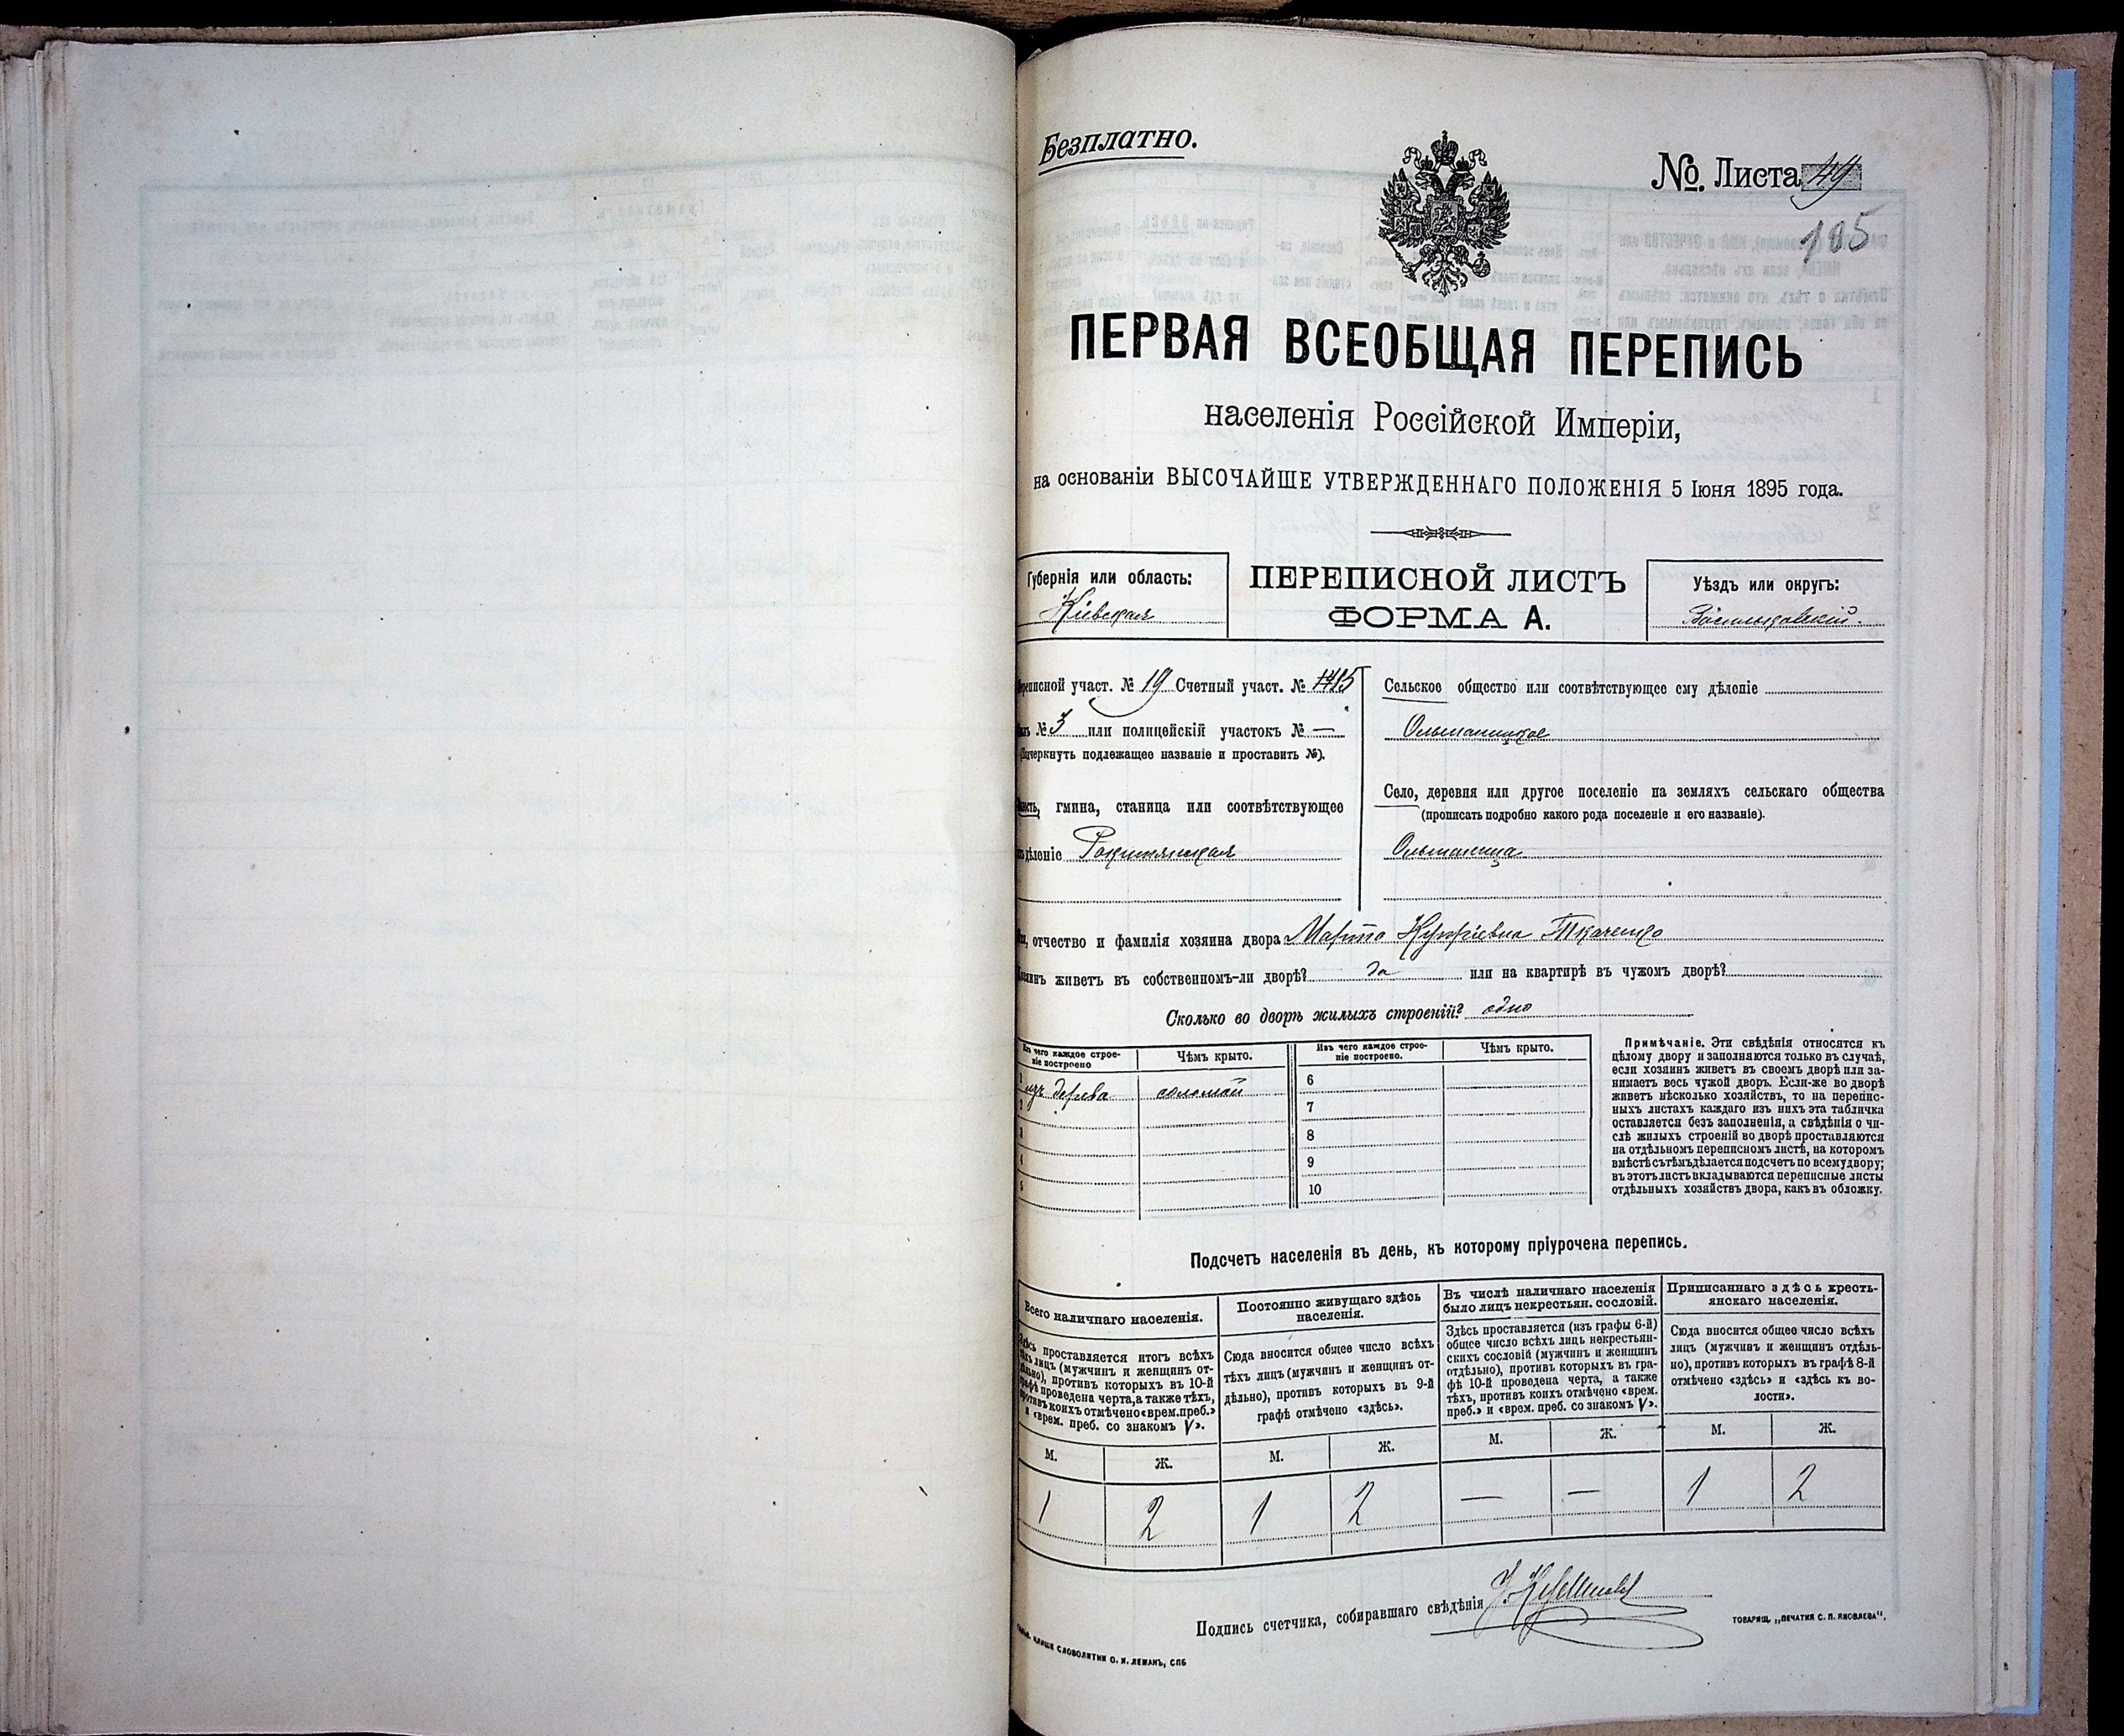 Безплатно.
№ Листа 49
185
ПЕРВАЯ ВСЕОБЩАЯ ПЕРЕПИСЬ
населенія Россійской Имперіи,
на основаніи ВЫСОЧАЙШЕ УТВЕРЖДЕННАГО ПОЛОЖЕНІЯ 5 Іюня 1895 года.
Губернія или область:
Кіевская
ПЕРЕПИСНОЙ ЛИСТЪ
ФОРМА А.
Уѣздъ или округъ:
Васильковскій.
Переписной участ. № 19 Счетный участ. №
№ 3 или полицейскій участокъ № —
(Подчеркнуть подлежащее названіе и проставить №).
гмина, станица или соотвѣтствующее
дѣленіе Рокитянская
Сельское общество или соотвѣтствующее ему дѣленіе
Ольшаницкое
Село, деревня или другое поселеніе на земляхъ сельскаго общества
(прописать подробно какого рода поселеніе и его названіе).
Ольшаница
отчество и фамилія хозяина двора Ткаченко
живетъ въ собственномъ-ли дворѣ? да или на квартирѣ въ чужомъ дворѣ?
Сколько во дворѣ жилыхъ строеній? одно
Изъ чего каждое строе-
ніе построено
Чѣмъ крыто.
Изъ чего каждое строе-
ніе построено.
Чѣмъ крыто.
1 изъ дерева соломой
2
3
4
5
6
7
8
9
10
Примѣчаніе. Эти свѣдѣнія относятся къ
цѣлому двору и заполняются только въ случаѣ,
если хозяинъ живетъ въ своемъ дворѣ или за-
нимаетъ весь чужой дворъ. Если-же во дворѣ
живетъ нѣсколько хозяйствъ, то на перепис-
ныхъ листахъ каждаго изъ нихъ эта табличка
оставляется безъ заполненія, а свѣдѣнія о чи-
слѣ жилыхъ строеній во дворѣ проставляются
на отдѣльномъ переписномъ листѣ, на которомъ
вмѣстѣ съ тѣмъ дѣлается подсчетъ по всему двору;
въ этотъ листъ вкладываются переписные листы
отдѣльныхъ хозяйствъ двора, какъ въ обложку.
Подсчетъ населенія въ день, къ которому пріурочена перепись.
Всего наличнаго населенія.
Здѣсь проставляется итогъ всѣхъ
тѣхъ лицъ (мужчинъ и женщинъ от-
дѣльно), противъ которыхъ въ 10-й
графѣ проведена черта, а также тѣхъ,
противъ коихъ отмѣчено «врем. преб.»
и «врем. преб. со знакомъ V».
М. Ж.
1 2
Постоянно живущаго здѣсь
населенія.
Сюда вносится общее число всѣхъ
тѣхъ лицъ (мужчинъ и женщинъ от-
дѣльно), противъ которыхъ въ 9-й
графѣ отмѣчено «здѣсь».
М. Ж.
1 2
Въ числѣ наличнаго населенія
было лицъ некрестьян. сословій.
Здѣсь проставляется (изъ графы 6-й)
общее число всѣхъ лицъ некрестьян-
скихъ сословій (мужчинъ и женщинъ
отдѣльно), противъ которыхъ въ гра-
фѣ 10-й проведена черта, а также
тѣхъ, противъ коихъ отмѣчено «врем.
преб.» и «врем. преб. со знакомъ V».
М. Ж.
— —
Приписаннаго здѣсь кресть-
янскаго населенія.
Сюда вносится общее число всѣхъ
лицъ (мужчинъ и женщинъ отдѣль-
но), противъ которыхъ въ графѣ 8-й
отмѣчено «здѣсь» и «здѣсь къ во-
лости».
М. Ж.
1 2
Подпись счетчика, собиравшаго свѣдѣнія
СЛОВОЛИТНИ О. И. ЛЕМАНЪ, СПБ
ТОВАРИЩ. „ПЕЧАТНЯ С. П. ЯКОВЛЕВА“.